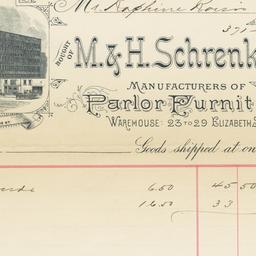 Mr. Kaphine Rosin
371
BOUGHT OF
M. & H. Schrenk
MANUFACTURERS OF
Parlor Furnit
WAREHOUSE: 23 TO 29 ELIZABETH S
Goods shipped at on
6.50 45 50
16.50 33